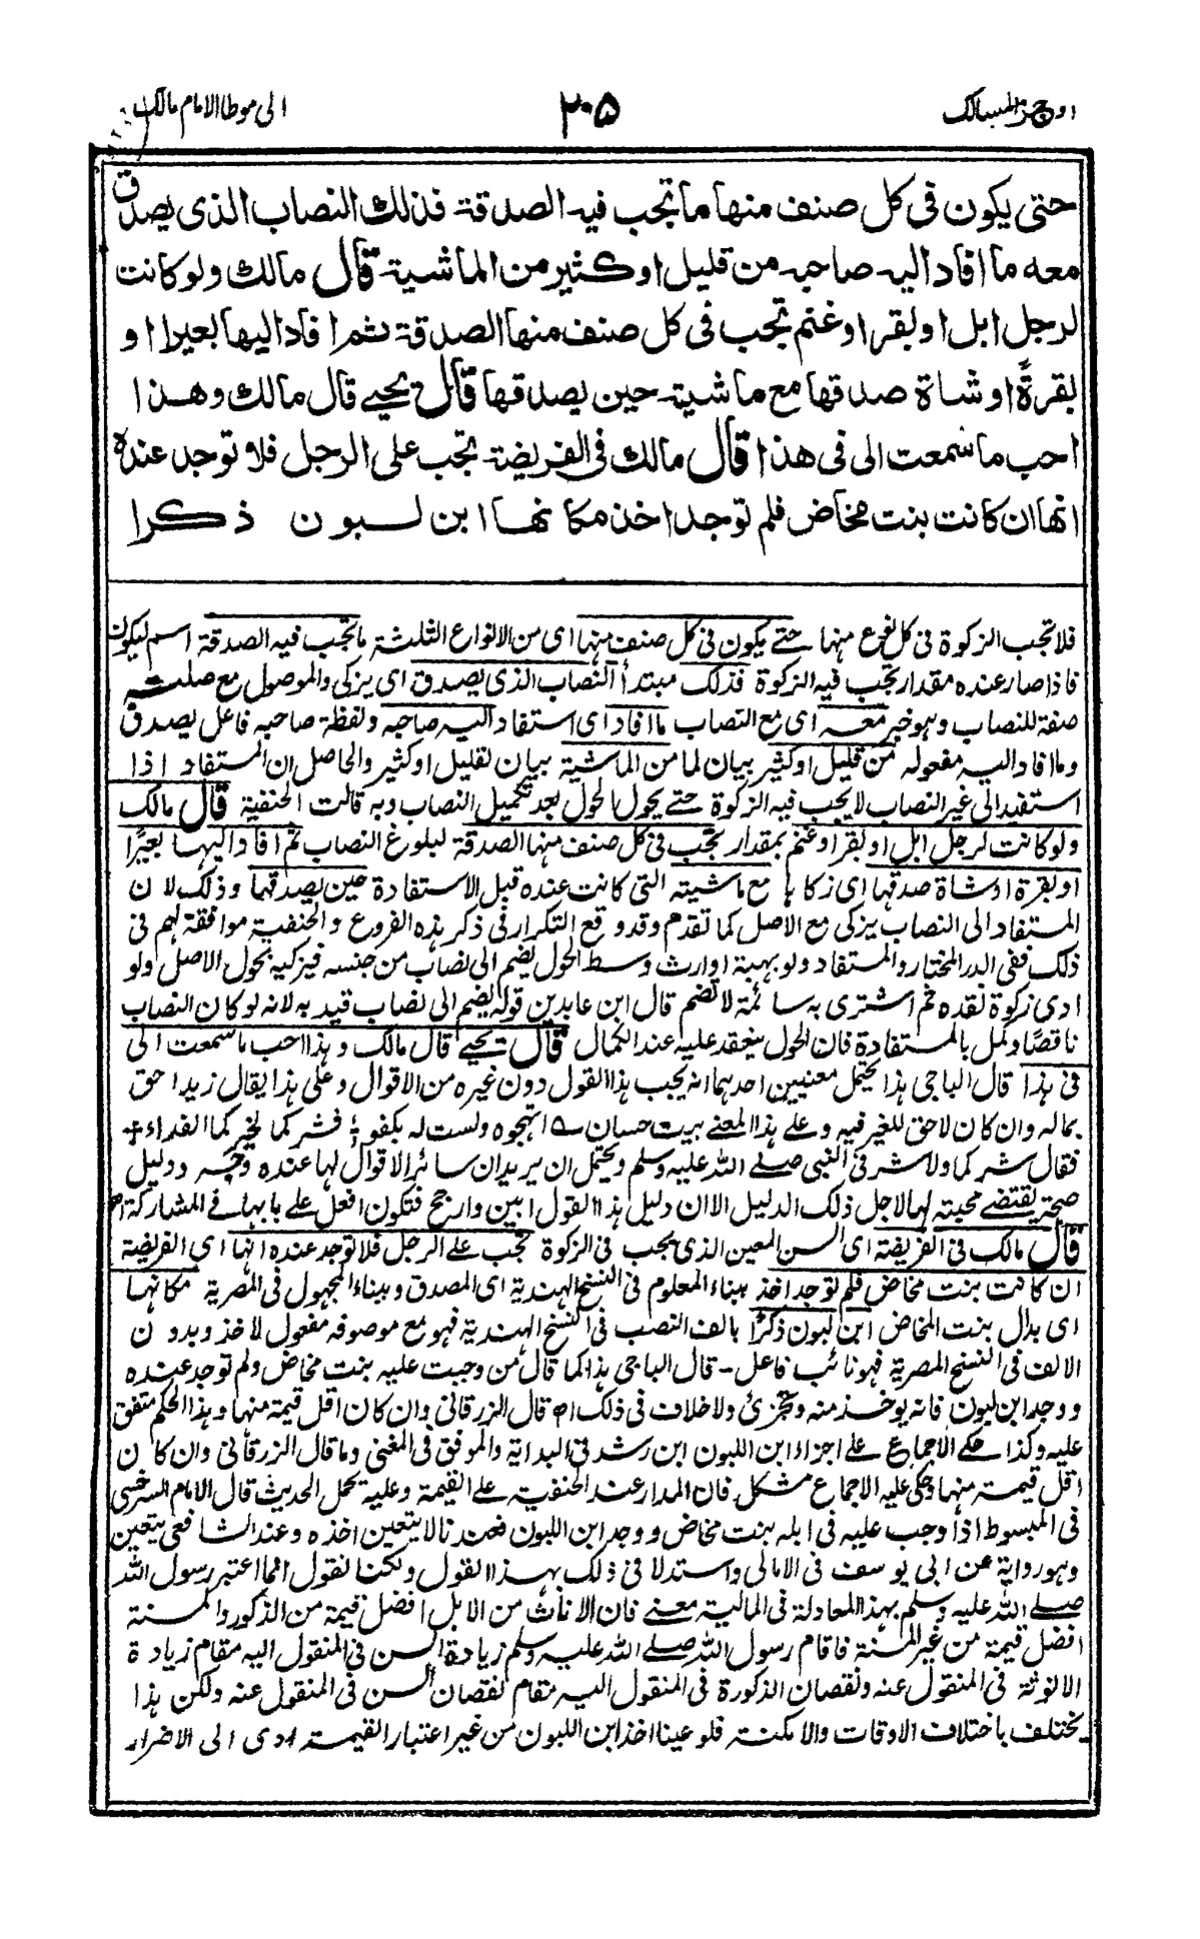 اوجز المسالك
٢٠٥
الى موطا الامام مالك
حتى يكون فى كل صنف منها ما تجب فيه الصدقة فذلك النصاب الذى يصدق
معه ما افاد اليه صاحبه من قليل او كثير من الماشية قال مالك ولو كانت
لرجل ابل او بقر او غنم تجب فى كل صنف منها الصدقة ثم افاد اليها بعيرا او
بقرة او شاة صدقها مع ماشيته حين يصدقها قال يحيى قال مالك وهذا
احب ما سمعت الى فى هذا قال مالك فى الفريضة تجب على الرجل فلا توجد عنده
انها ان كانت بنت مخاض فلم توجد اخذ مكانها ابن لبون ذكرا
فلا تجب الزكوة فى كل نوع منها حتى يكون فى كل صنف منها اى من الانواع الثلثة ما تجب فيه الصدقة اسم ليكون
فاذا صار عنده مقدار تجب فيه الزكوة فذلك مبتدأ النصاب الذى يصدق اى يزكى والموصول مع صلته
صفة للنصاب وهو خبر معه اى مع النصاب ما افاد اى استفاد اليه صاحبه ولفظة صاحبه فاعل يصدق
وما افاد اليه مفعوله من قليل او كثير بيان لما من الماشية بيان لقليل او كثير والحاصل ان المستفاد اذا
استفيد الى غير النصاب لا يجب فيه الزكوة حتى يحول الحول بعد تكميل النصاب وبه قالت الحنفية قال مالك
ولو كانت لرجل ابل او بقر او غنم بمقدار تجب فى كل صنف منها الصدقة لبلوغ النصاب ثم افاد اليها بعيرًا
او بقرة او شاة صدقها اى زكاها مع ماشيته التى كانت عنده قبل الاستفادة حين يصدقها وذلك لان
المستفاد الى النصاب يزكى مع الاصل كما تقدم وقد وقع التكرار فى ذكر هذه الفروع والحنفية موافقة لهم فى
ذلك ففى الدر المختار والمستفاد ولو بهبة او ارث وسط الحول يضم الى نصاب من جنسه فيزكيه بحول الاصل ولو
ادى زكوة نقده ثم اشترى به سائمة لا تضم قال ابن عابدين قوله يضم الى نصاب قيد به لانه لو كان النصاب
ناقصًا وكمل بالمستفادة فان الحول ينعقد عليه عند الكمال قال يحيى قال مالك وهذا احب ما سمعت الى
فى هذا قال الباجى هذا يحتمل معنيين احدهما انه يحب هذا القول دون غيره من الاقوال وعلى هذا يقال زيد احق
بماله وان كان لاحق للغير فيه وعلى هذا المعنى بيت حسان ؎ اتهجوه ولست له بكفوء ؛ فشركما لخيركما الفداء +
فقال شركما ولا شر فى النبى صلى الله عليه وسلم ويحتمل ان يريد ان سائر الاقوال لها عنده وجه ودليل
صحة يقتضى محبته لها لاجل ذلك الدليل الا ان دليل هذا القول ابين وارجح فتكون افعل على بابها فى المشاركة اھ
قال مالك فى الفريضة اى السن المعين الذى يجب فى الزكوة تجب على الرجل فلا توجد عنده انها اى الفريضة
ان كانت بنت مخاض فلم توجد اخذ ببناء المعلوم فى النسخ الهندية اى المصدق وببناء المجهول فى المصرية مكانها
اى بدل بنت المخاض ابن لبون ذكرًا بالف النصب فى النسخ الهندية فهو مع موصوفه مفعول لاخذ وبدون
الالف فى النسخ المصرية فهو نائب فاعل - قال الباجى هذا كما قال من وجبت عليه بنت مخاض ولم توجد عنده
ووجد ابن لبون فانه يوخذ منه ويجزئ ولا خلاف فى ذلك اھ قال الزرقانى وان كان اقل قيمة منها وهذا الحكم متفق
عليه وكذا حكى الاجماع على اجزاء ابن اللبون ابن رشد فى البداية والموفق فى المغنى وما قال الزرقانى وان كان
اقل قيمة منها وحكى عليه الاجماع مشكل فان المدار عند الحنفية على القيمة وعليه يحمل الحديث قال الامام السرخسى
فى المبسوط اذا وجب عليه فى ابله بنت مخاض ووجد ابن اللبون فعندنا لا يتعين اخذه وعند الشافعى يتعين
وهو رواية عن ابى يوسف فى الامالى واستدلا فى ذلك بهذا القول ولكنا نقول انما اعتبر رسول الله
صلى الله عليه وسلم بهذا المعادلة فى المالية معنى فان الاناث من الابل افضل قيمة من الذكور والمسنة
افضل قيمة من غير المسنة فاقام رسول الله صلى الله عليه وسلم زيادة السن فى المنقول اليه مقام زيادة
الانوثة فى المنقول عنه ونقصان الذكورة فى المنقول اليه مقام نقصان السن فى المنقول عنه ولكن هذا
يختلف باختلاف الاوقات والامكنة فلو عينا اخذ ابن اللبون من غير اعتبار القيمة ادى الى الاضرار